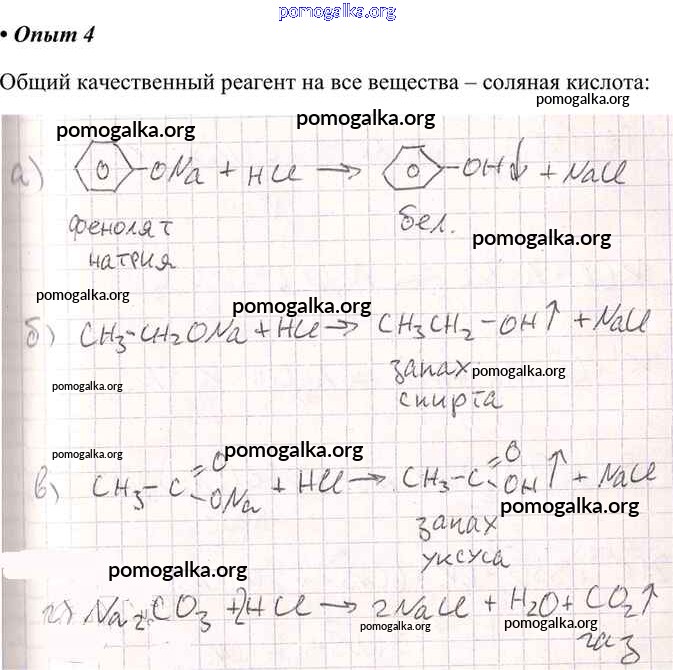 pomogalka.org
• Опыт 4
Общий качественный реагент на все вещества – соляная кислота:
pomogalka.org
pomogalka.org
pomogalka.org
а) O –ONa + HCl → O –OH↓ + NaCl
фенолят бел.
натрия
pomogalka.org
pomogalka.org
pomogalka.org
б) CH3-CH2ONa + HCl → CH3CH2-OH↑ + NaCl
запах
спирта
pomogalka.org
pomogalka.org
pomogalka.org
pomogalka.org
в) CH3-C=O ONa + HCl → CH3-C=O OH↑ + NaCl
запах
уксуса
pomogalka.org
pomogalka.org
г) Na2CO3 + 2HCl → 2NaCl + H2O + CO2↑
газ
pomogalka.org
pomogalka.org